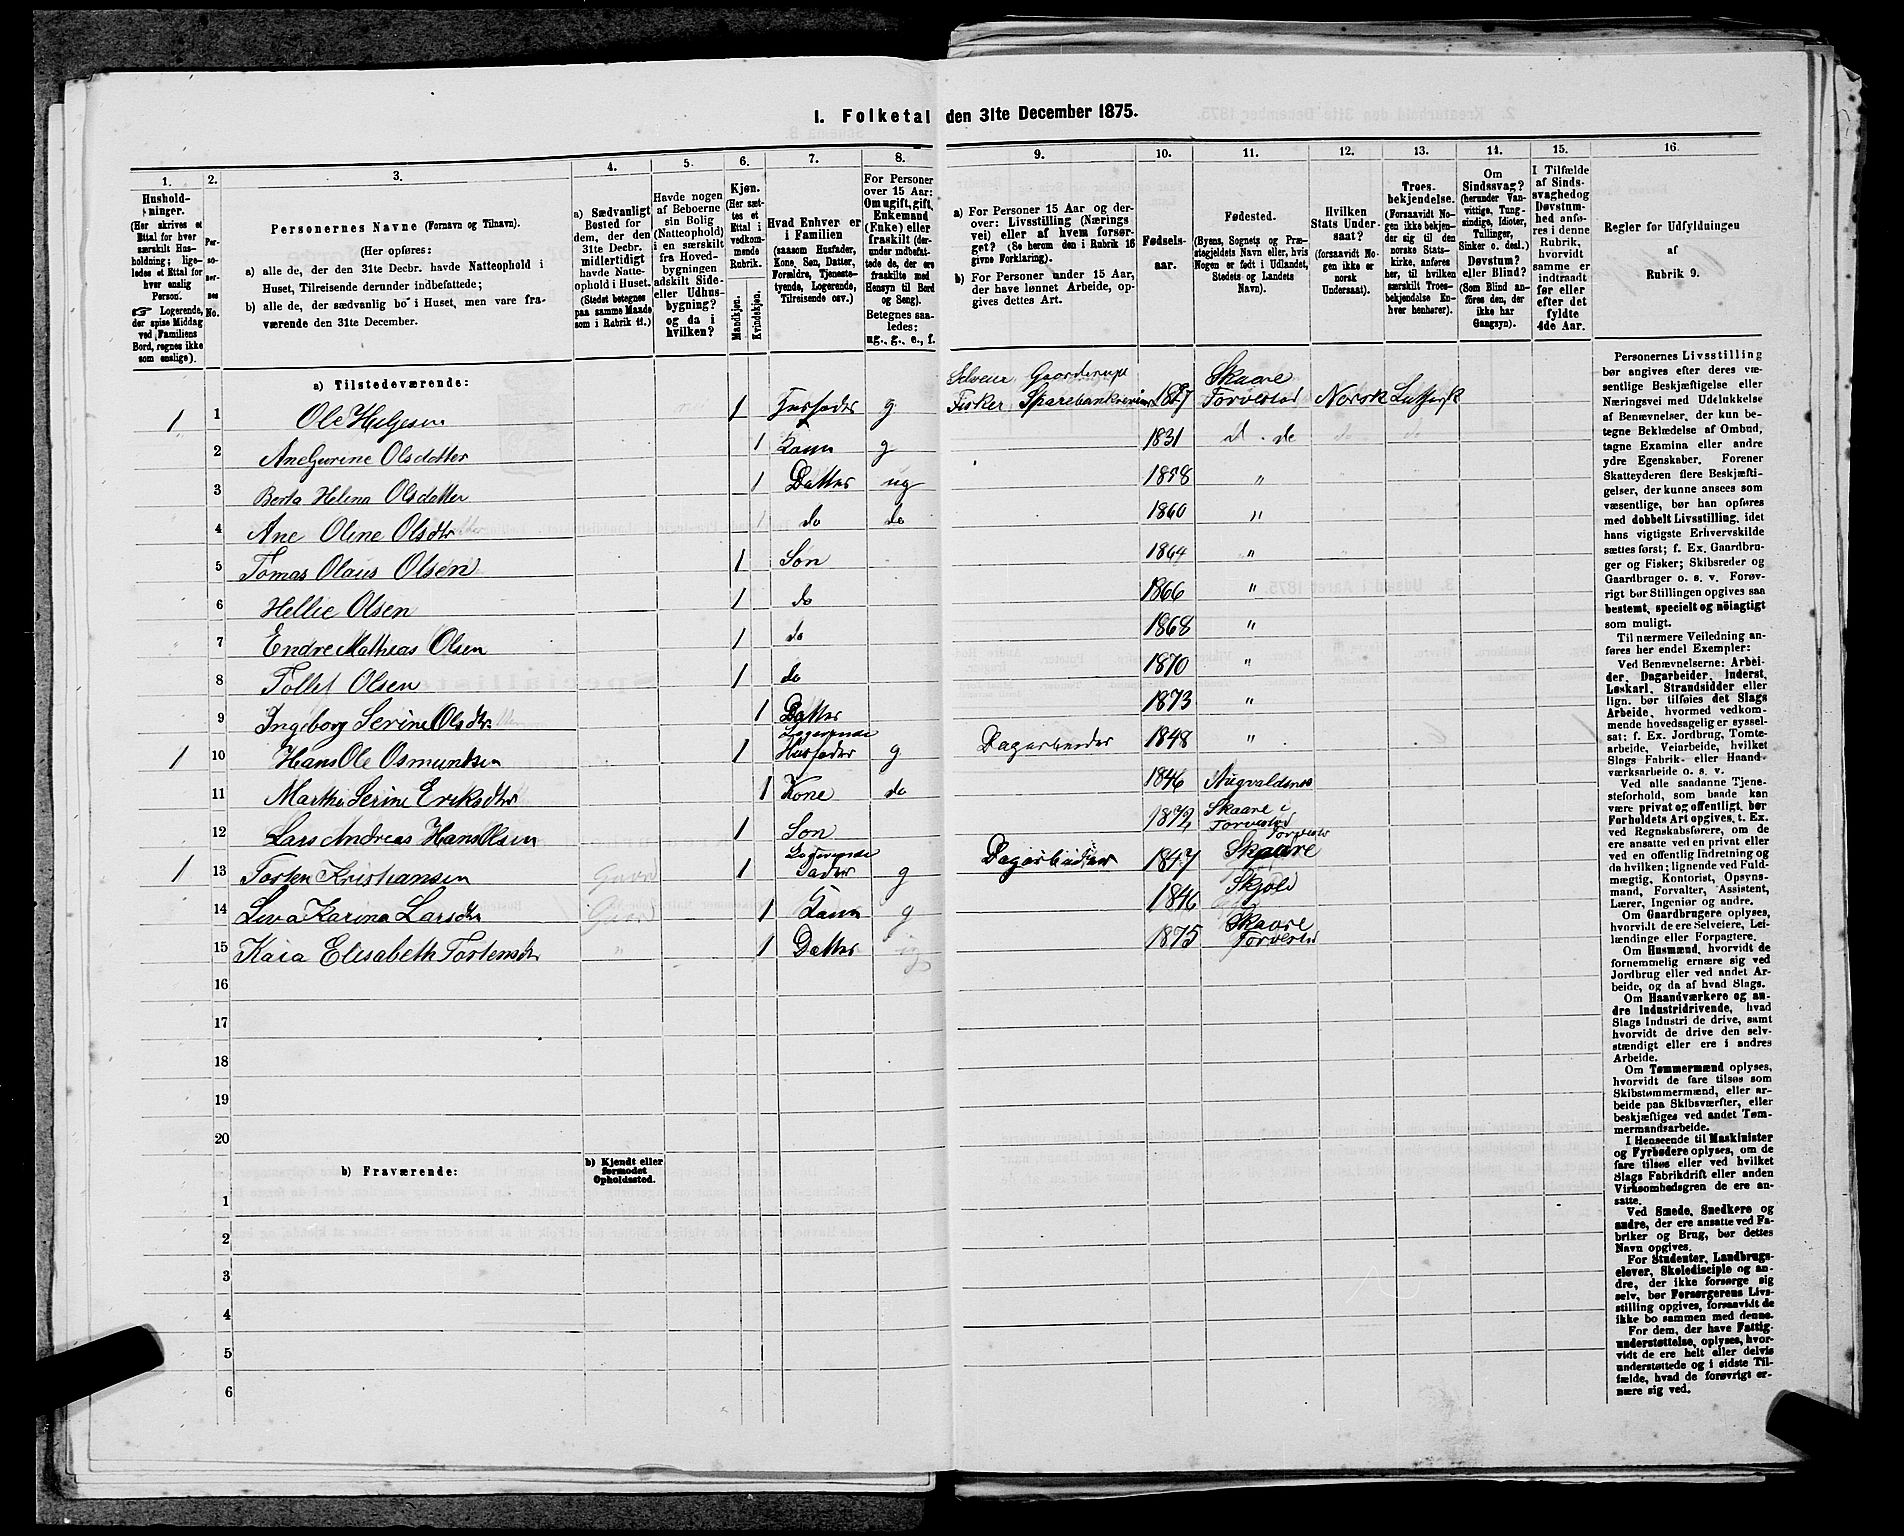 I. Folketal den 31te December 1875.
1.
2.
3.
4.
5.
6.
7.
8.
9.
10.
11.
12.
13.
14.
15.
16.
Husholdninger.
(Her skrives et
Ettal for hver
særskilt Husholdning; ligeledes
et Ettal for
hver enslig
Person.
☞ Logerende,
der spise Middag
ved Familiens
Bord, regnes ikke
som enslige).
Personernes No.
Personernes Navne (Fornavn og Tilnavn).
(Her opføres:
a) alle de, der den 31te Decbr. havde Natteophold i
Huset, Tilreisende derunder indbefattede;
b) alle de, der sædvanlig bo i Huset, men vare fraværende
den 31te December.
a) Sædvanligt
Bosted for
dem, der den
31te Decbr.
midlertidigt
havde Natteophold
i Huset.
(Stedet betegnes
paa samme Maade
som i Rubrik 11.)
Havde nogen
af Beboerne
sin Bolig
(Natteophold)
i en særskilt
fra Hovedbygningen
adskilt Side-
eller Udhusbygning?
og da i
hvilken?
Kjøn.
(Her sættes
et
Ettal i
vedkommende
Rubrik.
Mandkjøn.
Kvindekjøn.
Hvad Enhver er
i Familien
(saasom Husfader,
Kone, Søn, Datter,
Forældre, Tjenestetyende,
Logerende,
Tilreisende osv.)
For Personer
over 15 Aar:
Om ugift, gift,
Enkemand
(Enke) eller
fraskilt (derunder
indbefattede
de, der ere
fraskilte med
Hensyn til Bord
og Seng).
Betegnes saaledes:
ug., g., e., f.
a) For Personer 15 Aar og derover:
Livsstilling (Nærings
vei) eller af hvem forsørget?
(Se herom den i Rubrik 16
givne Forklaring).
b) For Personer under 15 Aar,
der have lønnet Arbeide, opgives
dettes Art.
Fødselsaar.
Fødested.
(Byens, Sognets og Præstegjeldets
Navn eller, hvis
Nogen er født i Udlandet,
Stedets og Landets
Navn).
Hvilken
Stats Undersaat?
(forsaavidt Nogen
ikke er
norsk
Undersaat).
Troesbekjendelse.
(Forsaavidt Nogen
ikke bekjender
sig til den
norske Statskirke,
anføres
her, til hvilken
særskilt Troesbekjendelse
Enhver
henhører).
Om
Sindssvag?
(herunder Vanvittige,
Tungsindige,
Idioter,
Tullinger,
Sinker o. desl.)
Døvstum?
eller Blind?
(Som Blind anføres
den, der
ikke har
Gangsyn).
I Tilfælde
af Sindssvaghed
og
Døvstumhed
anføres
i denne
Rubrik,
hvorvidt
samme er
indtraadt
før eller
efter det
fyldte
4de Aar.
Regler for Udfyldningen
af
Rubrik 9.
a) Tilstedeværende:
1 1 Ole Helgesen 1 Husfader g Selveier Gaardbruger Fisker Sparebankrevisor 1827 Skaare Torvestad Norsk
2 Ane Gurine Olsdatter 1 Kone g 1831 d. de do do
3 Berta Helena Olsdatter 1 Datter ug 1858 "
4 Ane Oline Olsdtr 1 do do 1860 "
5 Tomas Olaus Olsen 1 Søn 1864 "
6 Hellie Olsen 1 do 1866 "
7 Endre Mathias Olsen 1 do 1868 "
8 Tollef Olsen 1 do 1870 "
9 Ingeborg Serine Olsdtr 1 Datter 1873 "
1 10 Hans Ole Osmundsen 1 Logerende Husfader g Dagarbeider 1848 "
11 Martha Serine Eriksdtr 1 Kone do 1846 Augvaldsnes
12 Lars Andreas Hans Olsen 1 Søn 1872 Skaare i Torvestad
1 13 Torsten Kristiansen 1 Logerende Fader g Dagarbeider 1847 Skaare Torvestad
14 Lina Karina Larsdtr 1 Kone g 1846 Skjold
15 Kaia Elisabeth Torstensdtr 1 Datter 1875 Skaare Torvestad
16
17
18
19
20
b) Fraværende:
b) Kjendt eller
formodet
Opholdssted.
1
2
3
4
5
6
Personernes Livsstilling
bør angives efter deres væsentlige
Beskjæftigelse eller
Næringsvei med Udelukkelse
af Benævnelser, der kun betegne
Beklædelse af Ombud,
tagne Examina eller andre
ydre Egenskaber. Forener
Skatteyderen flere Beskjæftigelser,
der kunne ansees som
væsentlige, bør han opføres
med dobbelt Livsstilling, idet
hans vigtigste Erhvervskilde
sættes først; f. Ex. Gaardbruger
og Fisker; Skibsreder og
Gaardbruger o. s. v. Forøvrigt
bør Stillingen opgives saa
bestemt, specielt og nöiagtigt
som muligt.
Til nærmere Veiledning anføres
her endel Exempler:
Ved Benævnelserne: Arbeider,
Dagarbeider, Inderst,
Løskarl, Strandsidder eller
lign. bør tilføies det Slags
Arbeide, hvormed vedkommende
hovedsagelig er sysselsat;
f. Ex. Jordbrug, Tomtearbeide,
Veiarbeide, hvilket
Slags Fabrik- eller Haandværksarbeide
o. s. v.
Ved alle saadanne Tjenesteforhold,
som baade kan
være privat og offentligt, bør
Forholdets Art opgives, t. Ex.
ved Regnskabsførere, om de
ere ansatte ved en privat eller
ved en offentlig Indretning og
da hvilken; lignende ved Fuldmægtig,
Kontorist, Opsynsmand,
Forvalter, Assistent,
Lærer, Ingeniør og andre.
Om Gaardbrugere oplyses,
hvorvidt de ere Selveiere, Leilendinge
eller Forpagtere.
Om Husmænd, hvorvidt de
fornemmelig ernære sig ved
Jordbrug eller ved andet Arbeide,
og da af hvad Slags.
Om Haandværkere og andre
Industridrivende, hvad
Slags Industri de drive, samt
hvorvidt de drive den selvstændigt
eller ere i andres
Arbeide.
Om Tømmermænd oplyses,
hvorvidt de fare tilsøs som
Skibstømmermænd, eller arbeide
paa Skibsværfter, eller
beskjæftiges ved andet Tømmermandsarbeide.
I Henseende til Maskinister
og Fyrbødere oplyses, om de
fare tilsøs eller ved hvilket
Slags Fabrikdrift eller anden
Virksomhedsgren de ere ansatte.
Ved Smede, Snedkere og
andre, der ere ansatte ved Fabriker
og Brug, bør dettes
Navn opgives.
For Studenter, Landbrugselever,
Skoledisciple og andre,
der ikke forsørge sig
selv, bør Forsørgerens Livsstilling
opgives, forsaavidt de
ikke bo sammen med denne.
For dem, der have Fattigunderstøttelse,
oplyses, hvorvidt
de ere helt eller delvis
understøttede og i sidste Tilfælde,
hvad de forøvrigt ernære
sig ved.